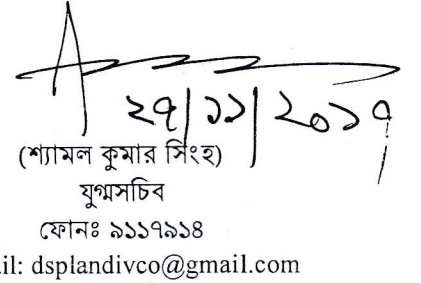 ২৭/১১/২০১৭
(শ্যামল কুমার সিংহ)
যুগ্মসচিব
ফোনঃ ৯১১৭৯১৪
il: dsplandivco@gmail.com